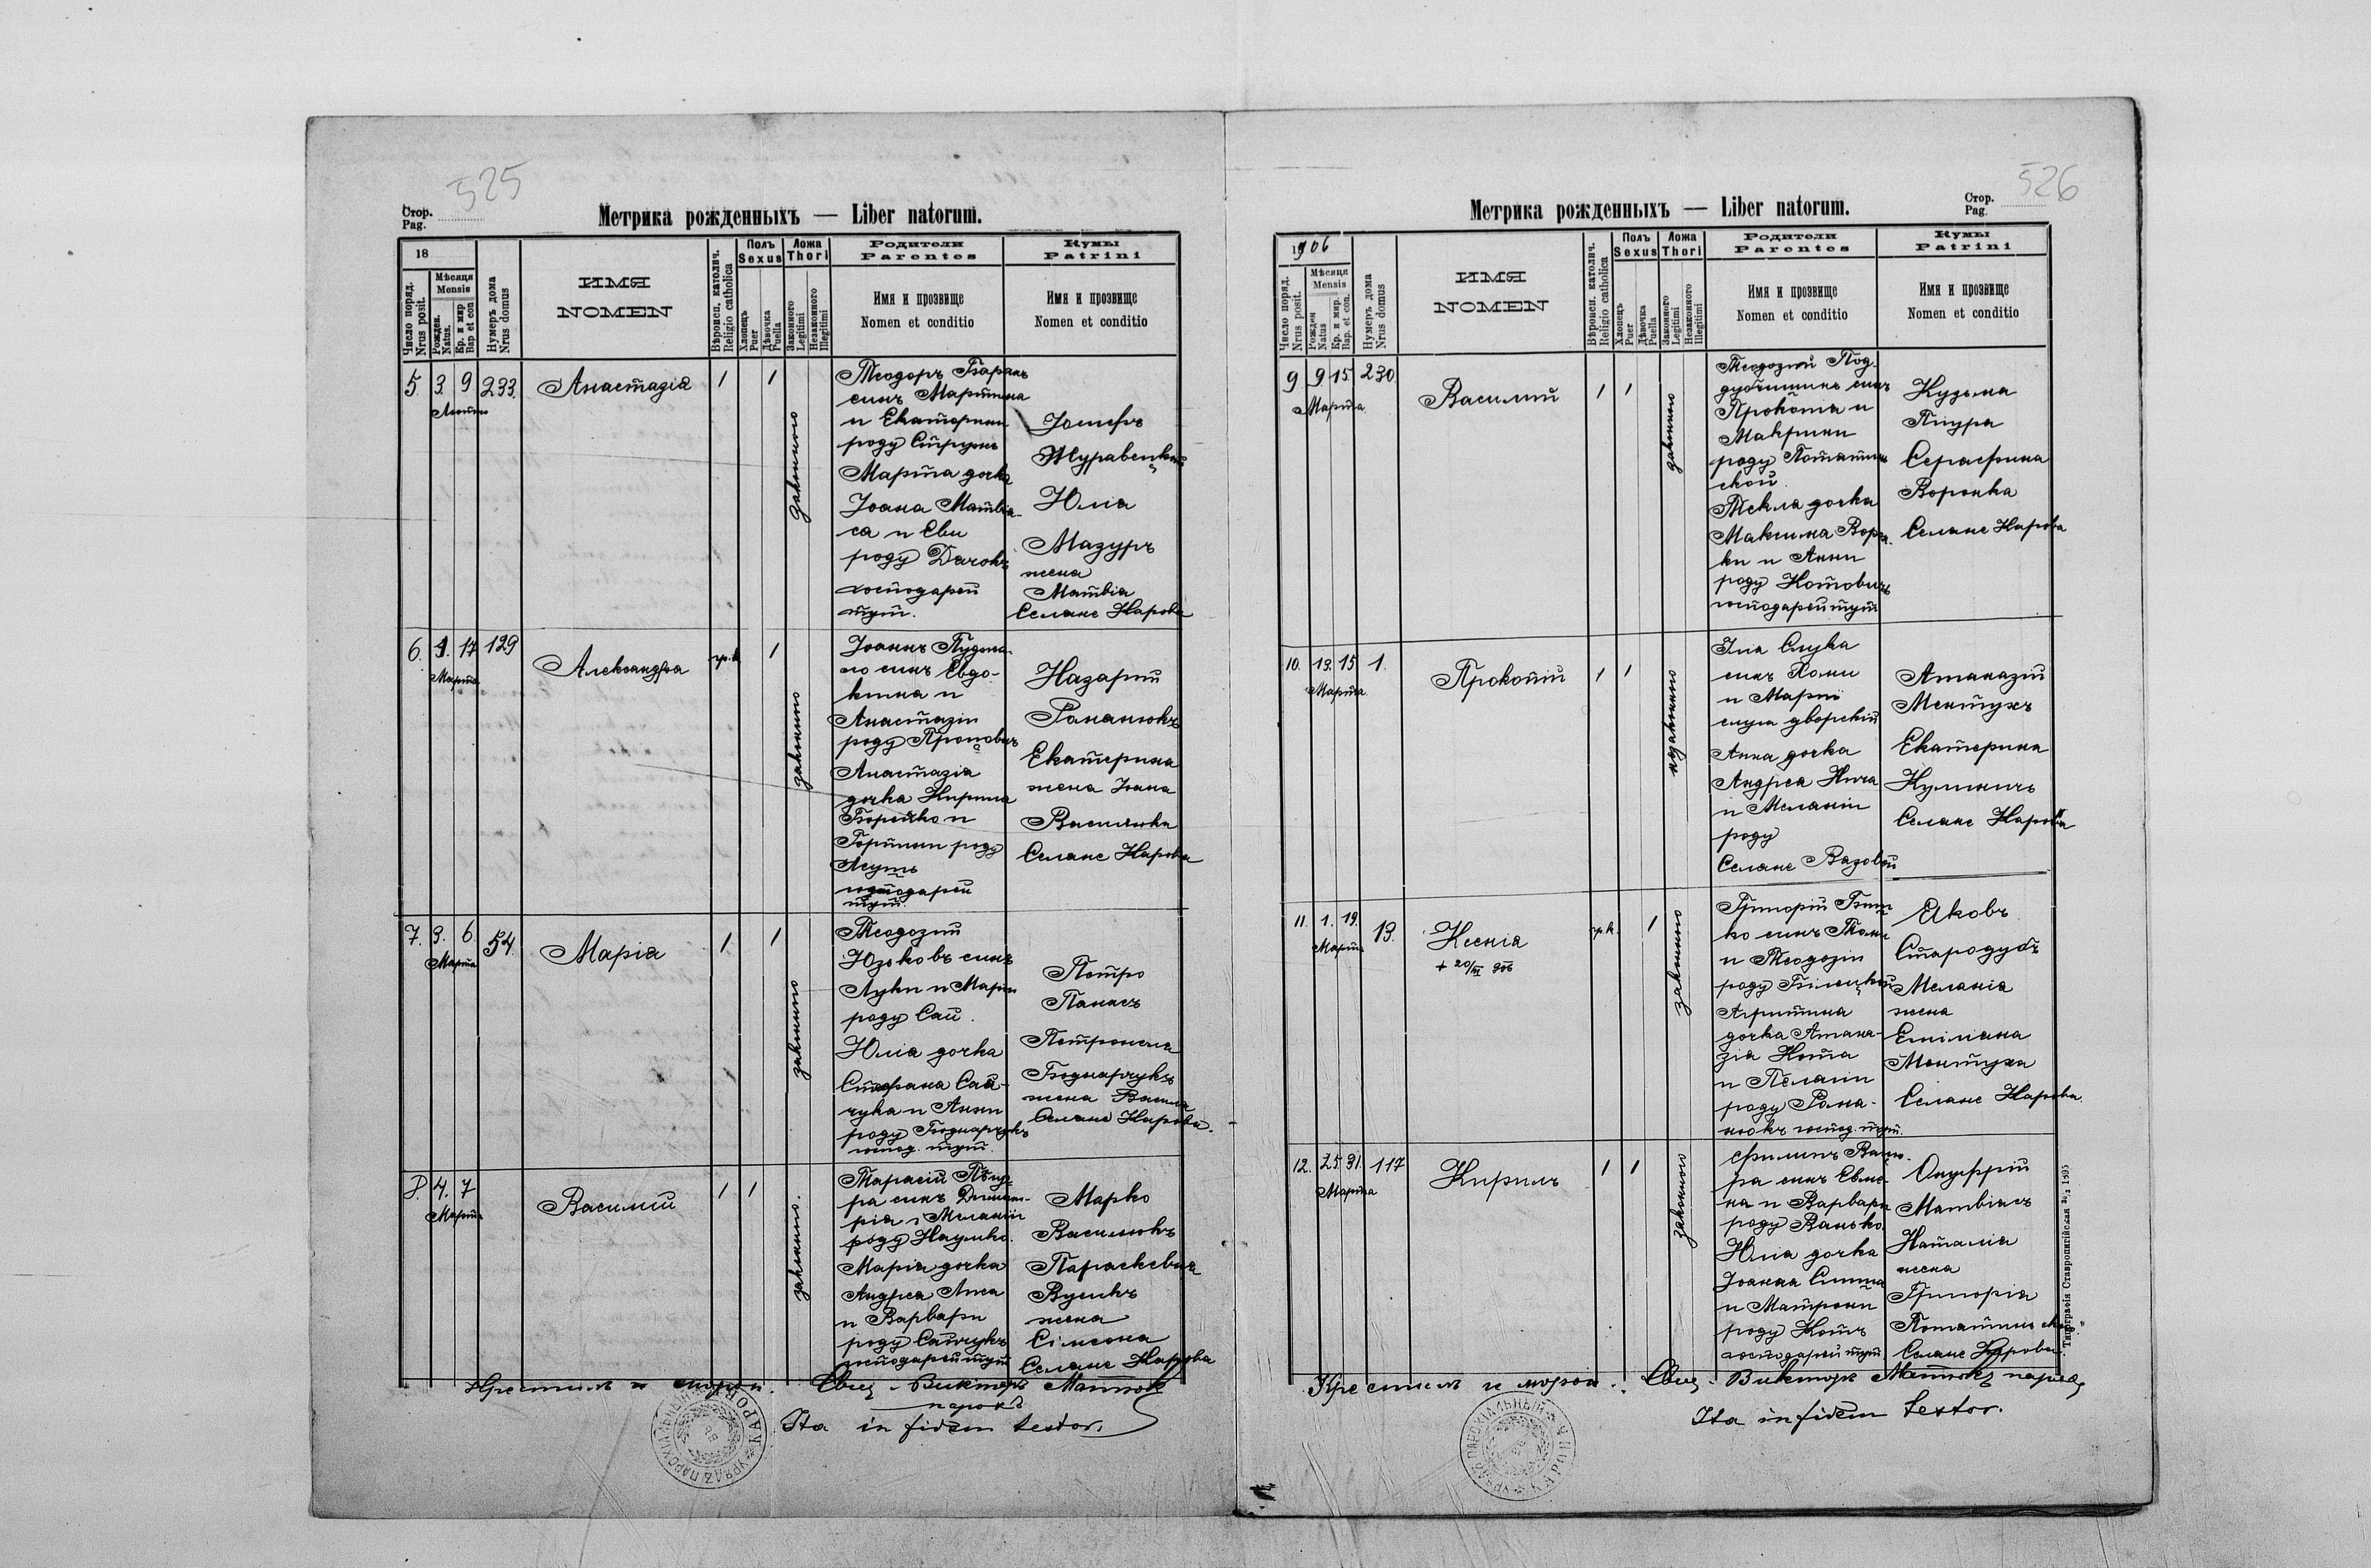 525
Стор.
Pag.
Метрика рожденныхъ — Liber natorum.
18
Число поряд.
Nrus posit.
Мѣсяця
Mensis
Рожден.
Natus.
Кр. и мир
Bap et con
Нумеръ дома
Nrus domus
ИМЯ
NOMEN
Вѣроисп. католич.
Religio catholica
Полъ
Sexus
Хлопецъ
Puer
Дѣвочка
Puella
Ложа
Thori
Законного
Legitimi
Незаконного
Illegitimi
Родители
Parentes
Имя и прозвище
Nomen et conditio
Кумы
Patrini
Имя и прозвище
Nomen et conditio
5. 3. 9 233.
Анастазія
1 1
законного
Теодоръ Баранъ
синъ Мартина
и Екатерини
роду
Марта дочка
Іоана Матвія-
са и Еви
роду
господарей
тут.
Іосифъ
Журавецкій
Юлія
Мазуръ
жена
Матвія
Селане Карова
6. 17 129
Марта
Александра
гр.к. 1
законного
Іоаннъ
го синъ Евдо-
кима и
Анастазіи
роду
Анастазія
дочка Кирила
Борейко и
роду
господарей
тут.
Назарій
Романюкъ
Екатерина
жена Іоана
Василюка
Селане Карова
7. 3. 6. 54
Марта
Марія
1. 1
законного
Теодозій
Юзьковъ синъ
Луки и Маріи
роду Сай.
Юлія дочка
Стефана Сай-
чука и Анни
роду Боднарчукъ
господ. тут.
Петро
Панасъ
Петронеля
Боднарчукъ
жена Василя
Селане Карова.
8. 4. 7
Марта
Василій
1 1
законного.
Тарасій
ра синъ Димит-
рія и Меланіи
роду Наумко.
Марія дочка
Андрея Лиса
и Варвари
роду Сайчукъ
господарей тут
Марко
Василюкъ
Параскевія
жена
Сімеона
Селане Карова
Крестилъ и миров. Свящ. Викторъ Матюкъ
парохъ
Ita in fidem testor.
526
Стор.
Pag.
Метрика рожденныхъ — Liber natorum.
1906
Число поряд.
Nrus posit.
Мѣсяця
Mensis
Рожден
Natus
Кр. и мир.
Bap. et con.
Нумеръ дома
Nrus domus
ИМЯ
NOMEN
Вѣроисп. католич.
Religio catholica
Полъ
Sexus
Хлопецъ
Puer
Дѣвочка
Puella
Ложа
Thori
Законного
Legitimi
Незаконного
Illegitimi
Родители
Parentes
Имя и прозвище
Nomen et conditio
Кумы
Patrini
Имя и прозвище
Nomen et conditio
9 9 15. 230.
Марта
Василій
1 1
законного
Теодозій Под-
синъ
Прокопа и
Макрини
роду
ской.
Текля дочка
Максима
ки и Анни
роду Котовичъ
господарей тут
Кузьма
Піура
Серафина
Воронка
Селане Карова
10. 13. 15 1.
Марта
Прокопій
1 1
незаконного
Ілія Слука
синъ Хоми
и Маріи
слуга дворскій
Анна дочка
Андрея
и Меланіи
роду
Селане
Атаназій
Ментухъ
Екатерина
Селане Карова
11. 1. 19. 13.
Марта
Ксенія
+ 20/III 906
гр.к. 1
законного
Григорій
ко синъ Томи
и Теодозіи
роду
Агрипина
дочка Атана-
зія Кота
и Пелагіи
роду Рома-
нюкъ господ. тут.
Яковъ
Стародубъ
Меланія
жена
Еміліана
Ментуха
Селане Карова.
12. 25 31. 117
Марта
Кирилъ
1 1
законного
Филипъ
ра синъ
на и Варвари
роду Ванько.
Юлія дочка
Іоанна
и Матрони
роду Котъ
господарей тут
Онуфрій
Матвіясъ
Наталія
жена
Григорія
Селане Карова
Типографія Ставропигійская 1895
Крестилъ и миров. Свящ. Викторъ Матюкъ парохъ
Ita in fidem testor.